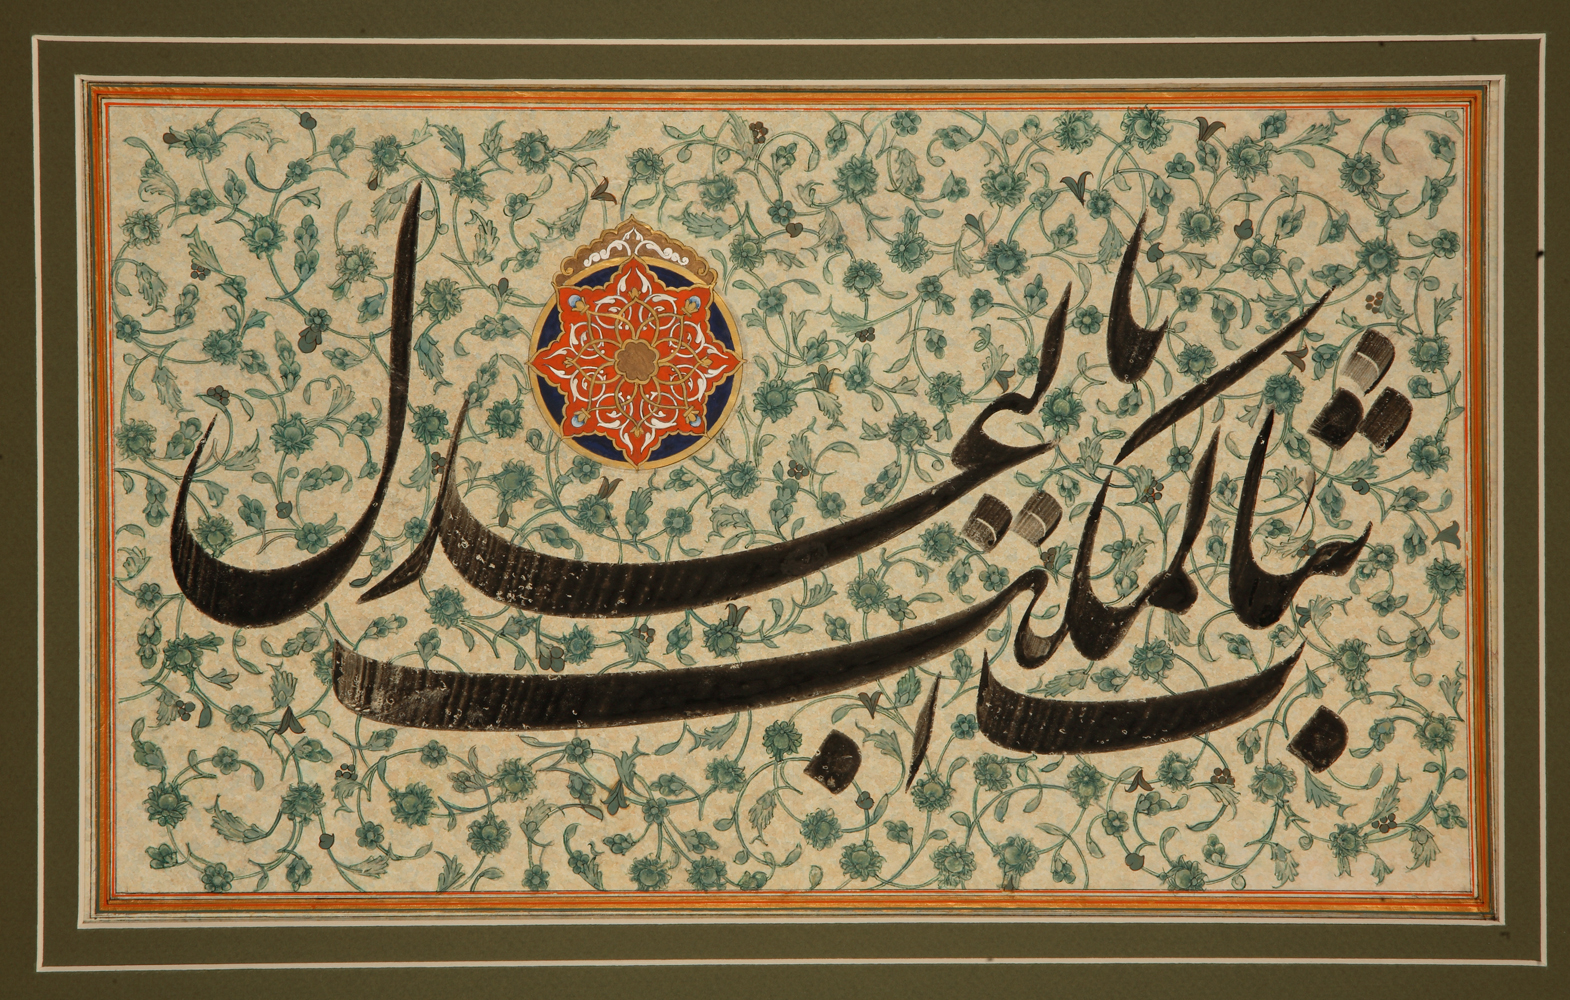 ثبات الملک بالعدل